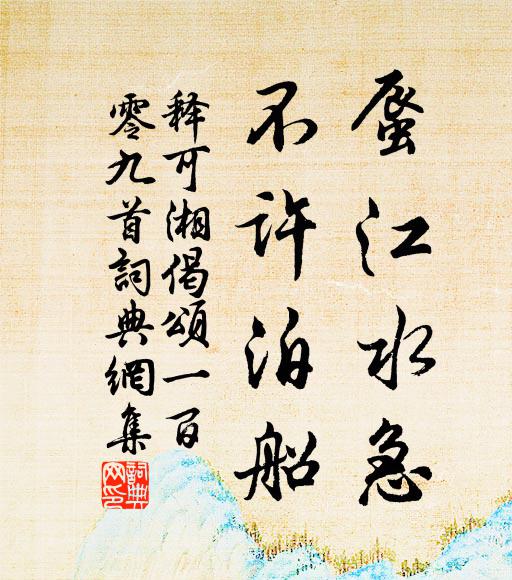 蜃江水急
不许泊船
释可湘偈颂一百
零九首词典网集
词典网印